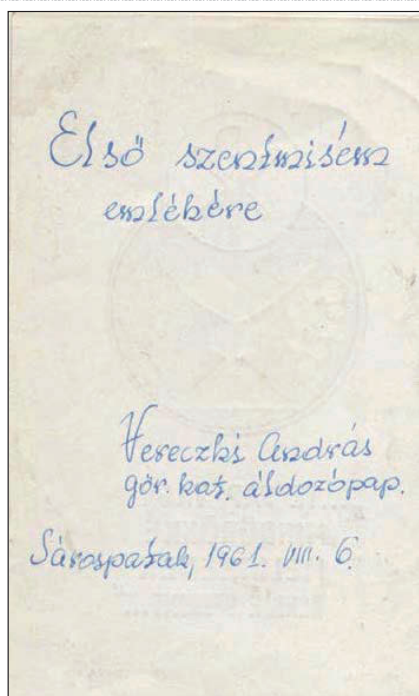 Első szentmisém
emlékére
Vereczki András
gör. kat. áldozópap.
Sárospatak, 1961. VIII. 6.